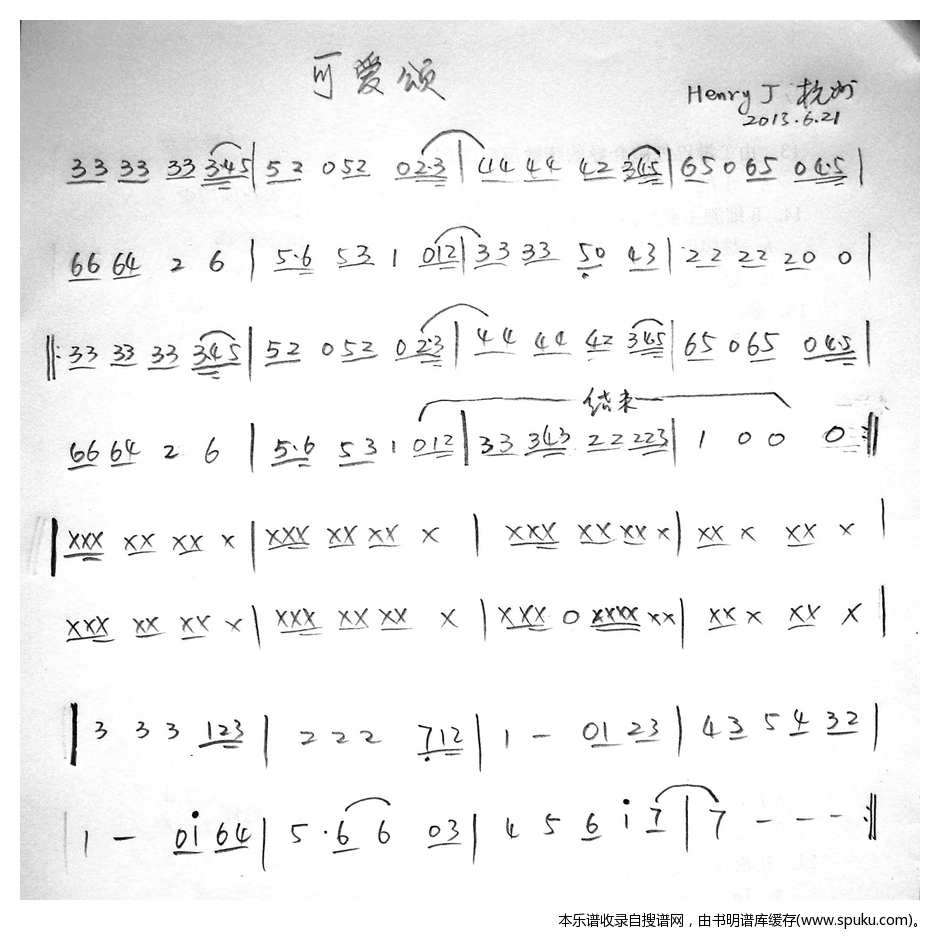 可爱颂
Henry J 杭州
2013.6.21
33 33 33 3·45 | 52 052 02·3 | 44 44 42 345 | 65065 04·5 |
66 64 2 6 | 5·6 53 1 012 | 33 33 50 43 | 22 22 20 0 |
‖: 33 33 33 345 | 52 052 02·3 | 44 44 42 345 | 65065 04·5 |
结束
66 64 2 6 | 5·6 53 1 012 | 33 343 22 223 | 1 0 0 0 :‖
| xxx xx xx x | xxx xx xx x | xxx xx xx x | xx x xx x |
xxx xx xx x | xxx xx xx x | xxx 0 xxxx xx | xx x xx x |
| 3 3 3 123 | 2 2 2 712 | 1 – 01 23 | 43 5 4 32 |
| 1 – 0i 64 | 5 · 6 6 03 | 4 5 6 i 7 | 7 – – – :‖
本乐谱收录自搜谱网，由书明谱库缓存(www.spuku.com)。